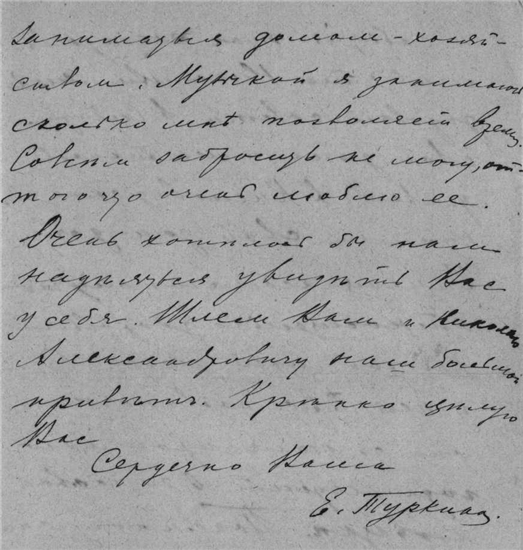 заниматься домом-хозяй-
ством. Музыкой я занимаюсь
сколько мнѣ позволяетъ время.
Совсѣм забросить не могу, от-
того что очень люблю ее.
Очень хотѣлось бы нам
надѣяться увидѣть Вас
у себя. Шлем Вам и Николаю
Александровичу наш большой
привѣтъ. Крѣпко цѣлую
Вас
Сердечно Ваша
Е. Туркина.